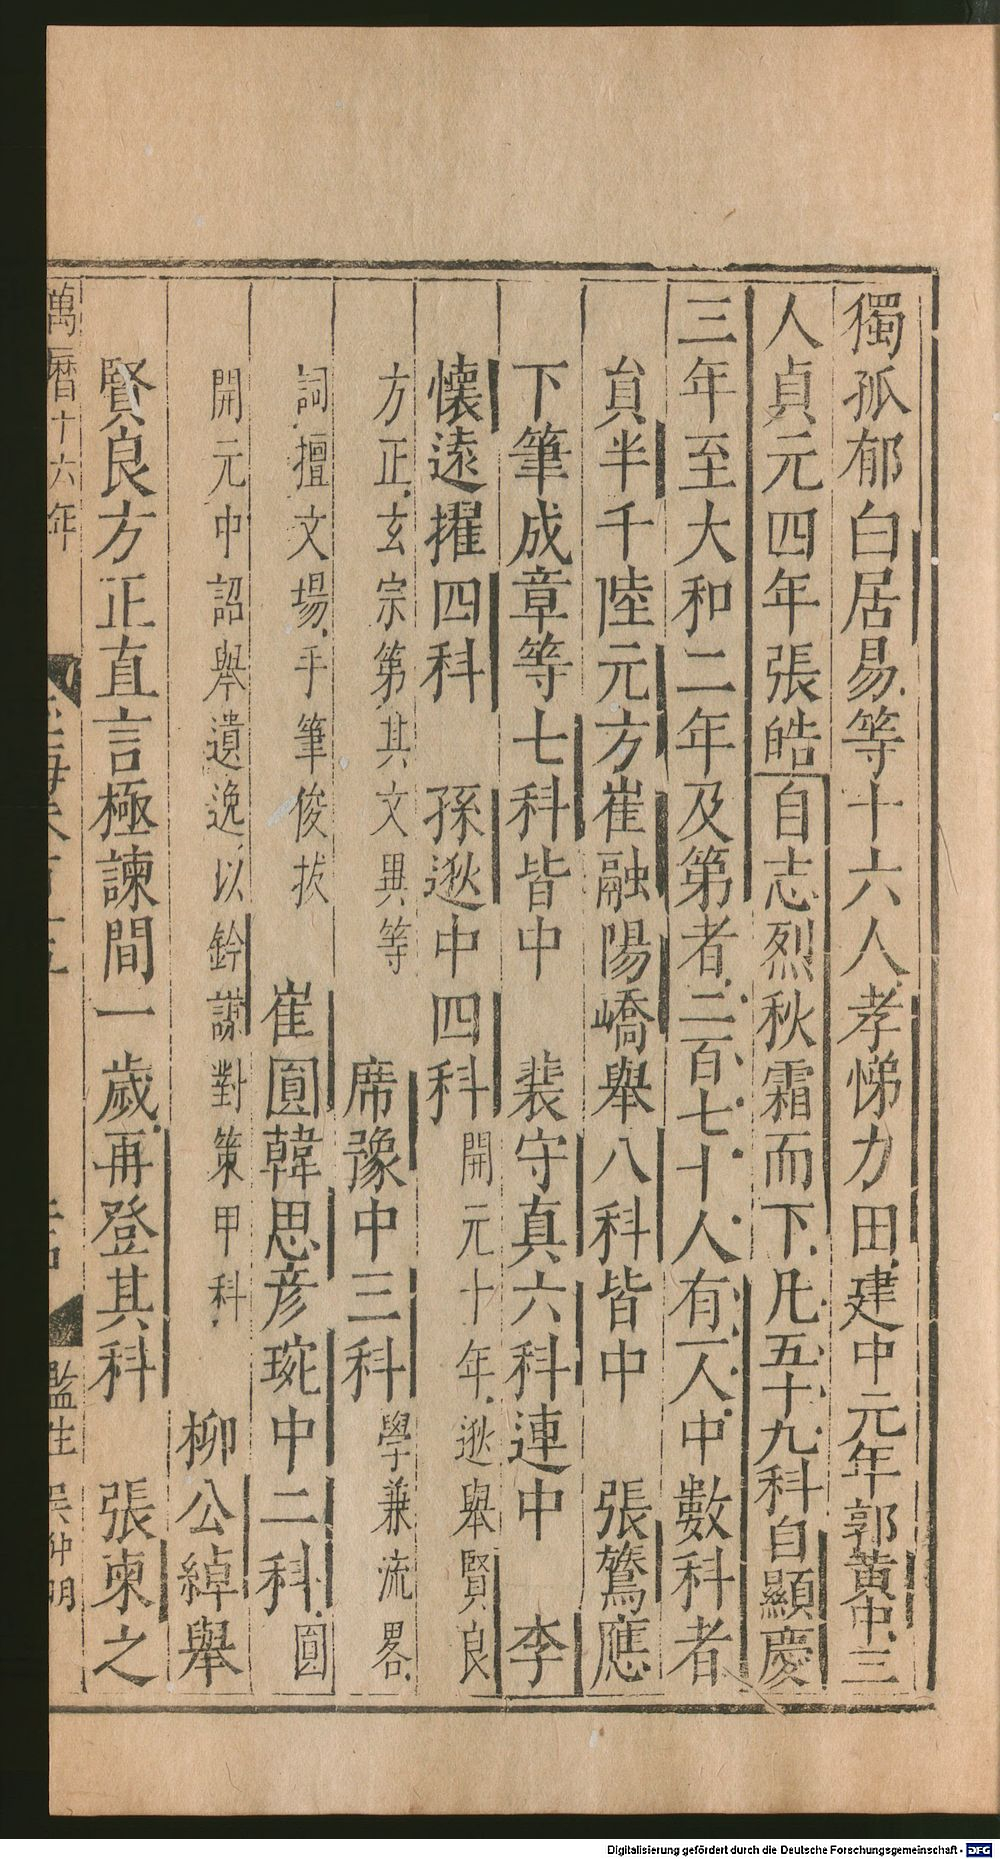 獨孤郁白居易等十六人孝悌力田建中元年郭黃中三
人貞元四年張皓自志烈秋霜而下凡五十九科自顯慶
三年至大和二年及第者二百七十人有一人中數科者
貟半千陸元方崔融陽嶠舉八科皆中　張鷟應
下筆成章等七科皆中　裴守真六科連中　李
懷遠擢四科　孫逖中四科開元十年逖舉賢良
方正玄宗第其文異等　席豫中三科學兼流畧
詞擅文場手筆俊拔　崔圓韓思彥琬中二科圓
開元中詔舉遺逸以鈐謀對策甲科　柳公綽舉
賢良方正直言極諫間一歲再登其科　張柬之
萬曆十六年
監生吳仲明
Digitalisierung gefördert durch die Deutsche Forschungsgemeinschaft - DFG